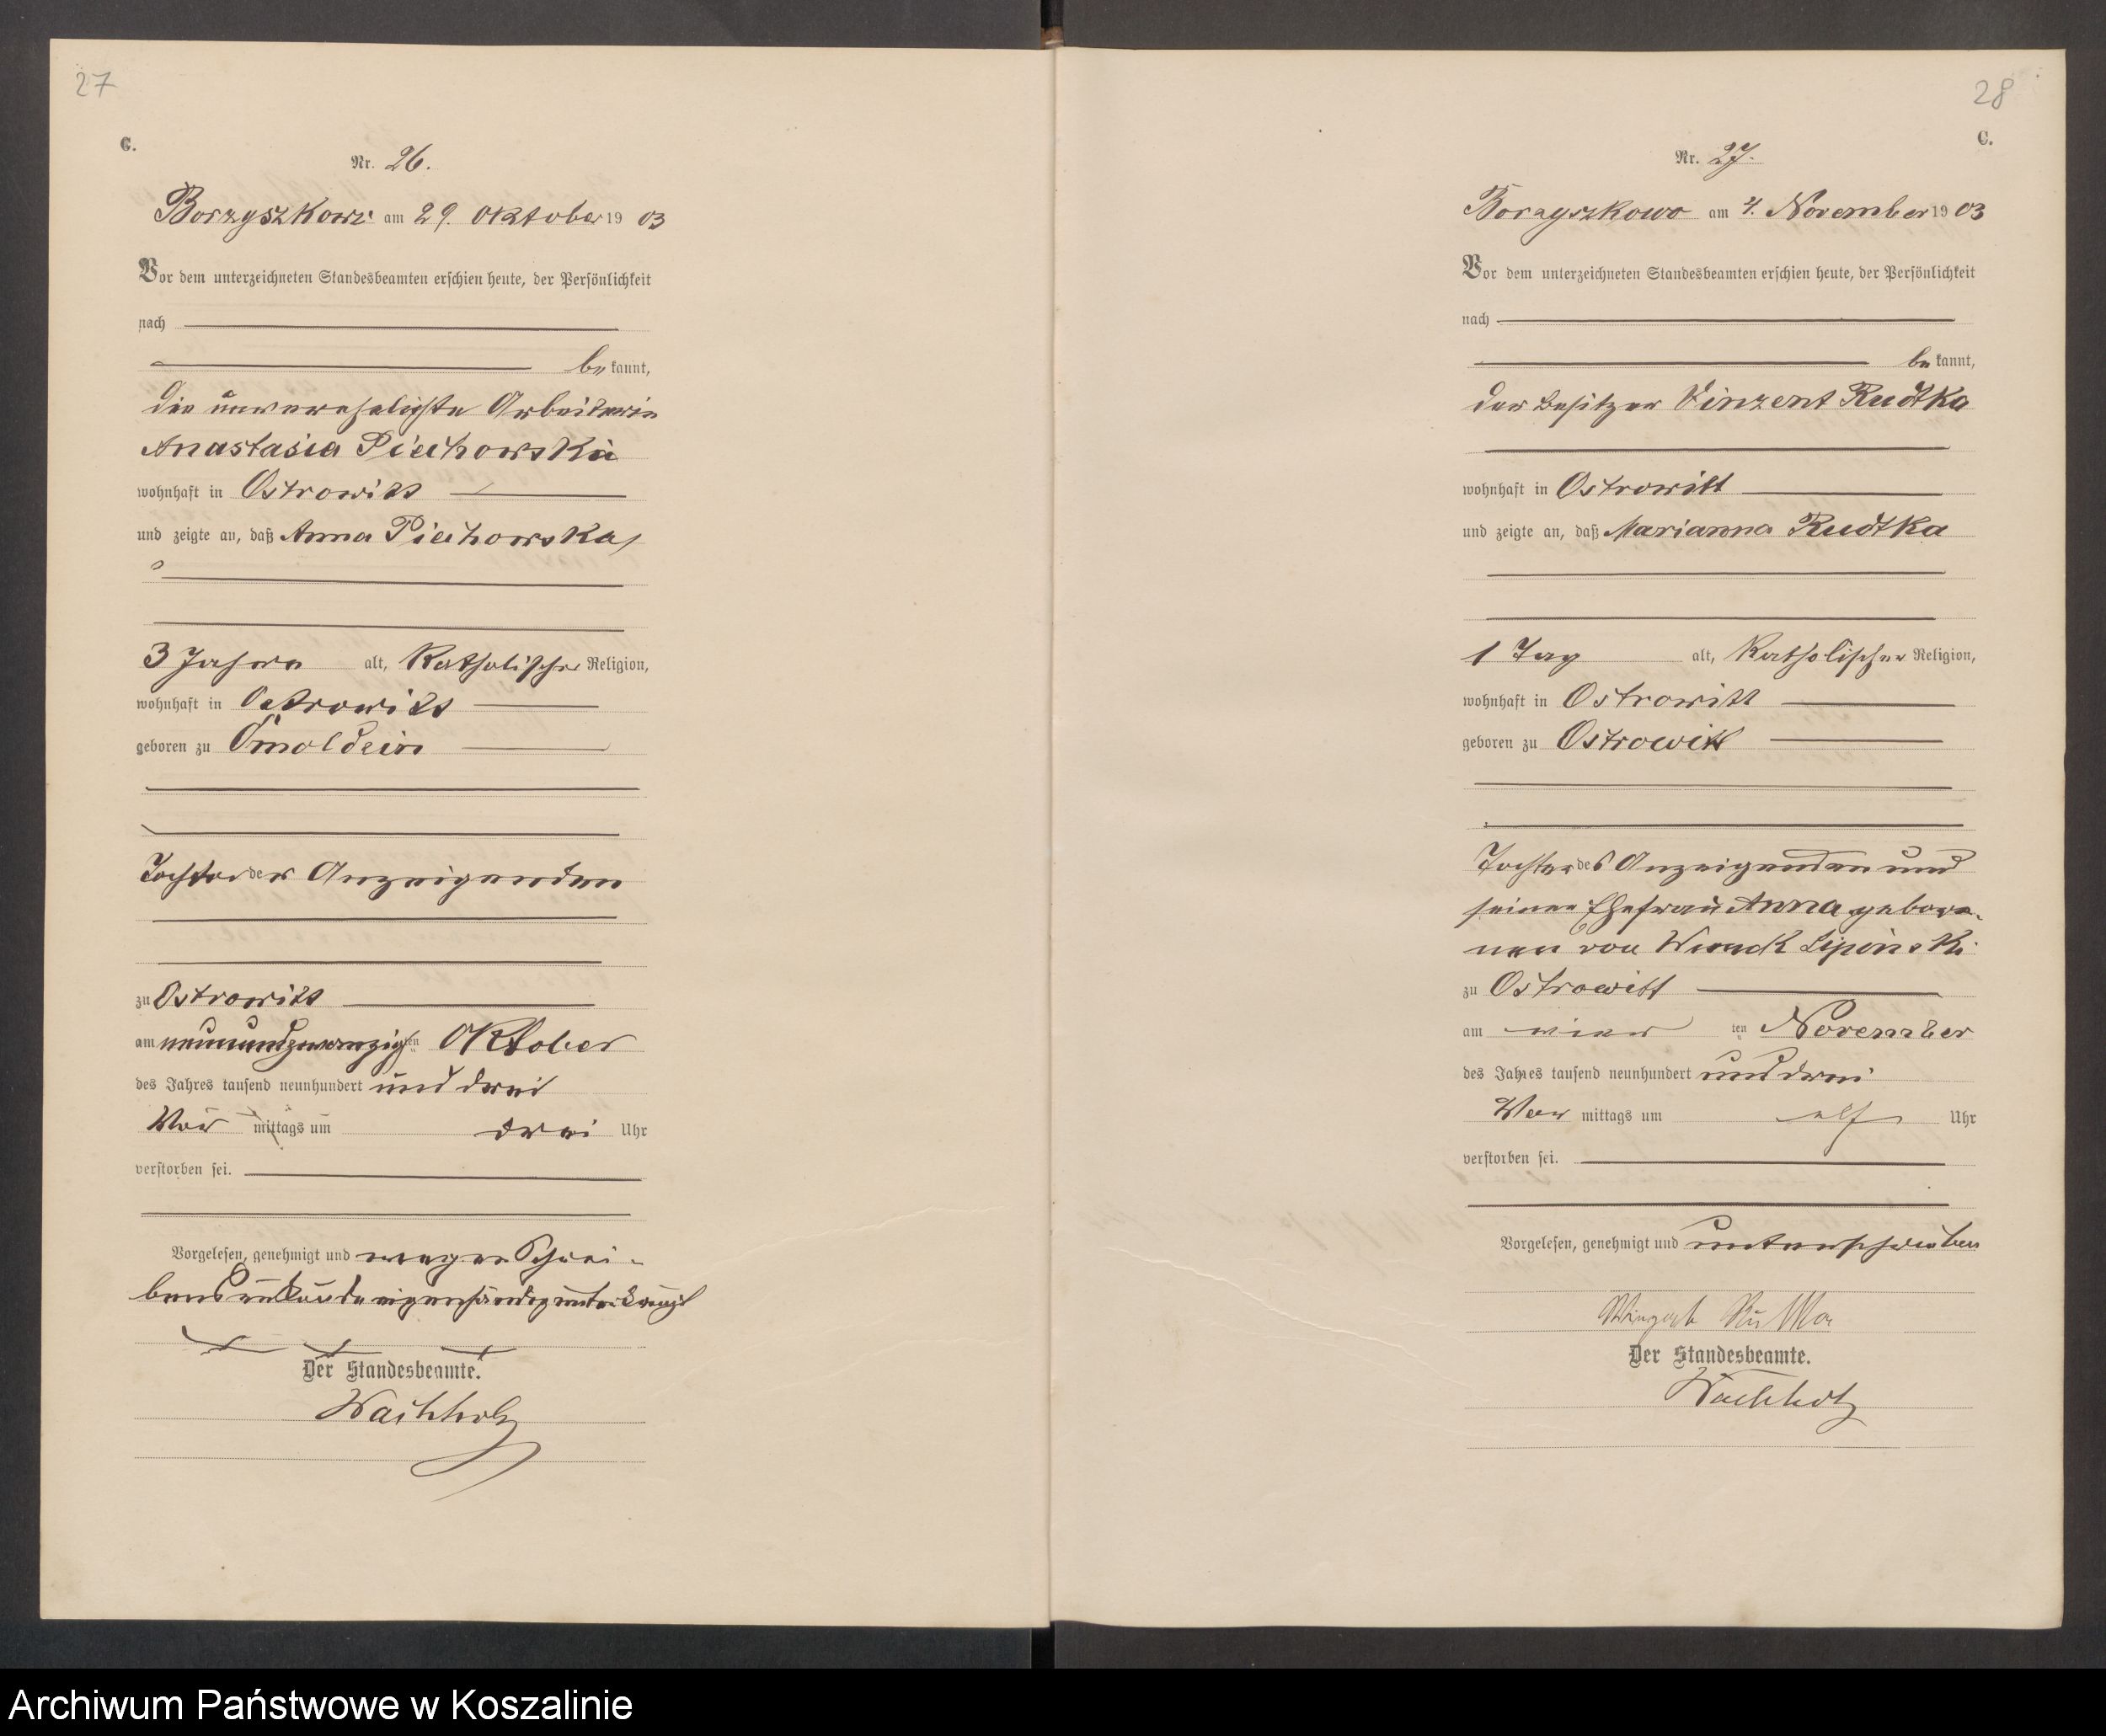 27
C.
Nr. 26.
Borzyszkowo am 29. Oktober 1903
Vor dem unterzeichneten Standesbeamten erschien heute, der Persönlichkeit
nach
bekannt,
die unverehelichte Arbeiterin
Anastasia Piechowska
wohnhaft in Ostrowitt
und zeigte an, daß Anna Piechowska,
3 Jahre alt, Katholischer Religion,
wohnhaft in Ostrowitt
geboren zu
Tochter der Anzeigenden
zu Ostrowitt
am neunundzwanzigsten Oktober
des Jahres tausend neunhundert und drei
Vor mittags um drei Uhr
verstorben sei.
Vorgelesen, genehmigt und wegen Schrei-
bensunkunde eigenhändig unterkreuzt
Der Standesbeamte.
Wachholz
28
C.
Nr. 27.
Borzyszkowo am 4. November 1903
Vor dem unterzeichneten Standesbeamten erschien heute, der Persönlichkeit
nach
bekannt,
der Besitzer Vinzent Rudtka
wohnhaft in Ostrowitt
und zeigte an, daß Marianna Rudtka
1 Tag alt, Katholischer Religion,
wohnhaft in Ostrowitt
geboren zu Ostrowitt
Tochter des Anzeigenden und
seiner Ehefrau Anna gebore-
nen von Lipinski
zu Ostrowitt
am vierten November
des Jahres tausend neunhundert und drei
Vor mittags um elf Uhr
verstorben sei.
Vorgelesen, genehmigt und unterschrieben
Der Standesbeamte.
Wachholz
Archiwum Państwowe w Koszalinie